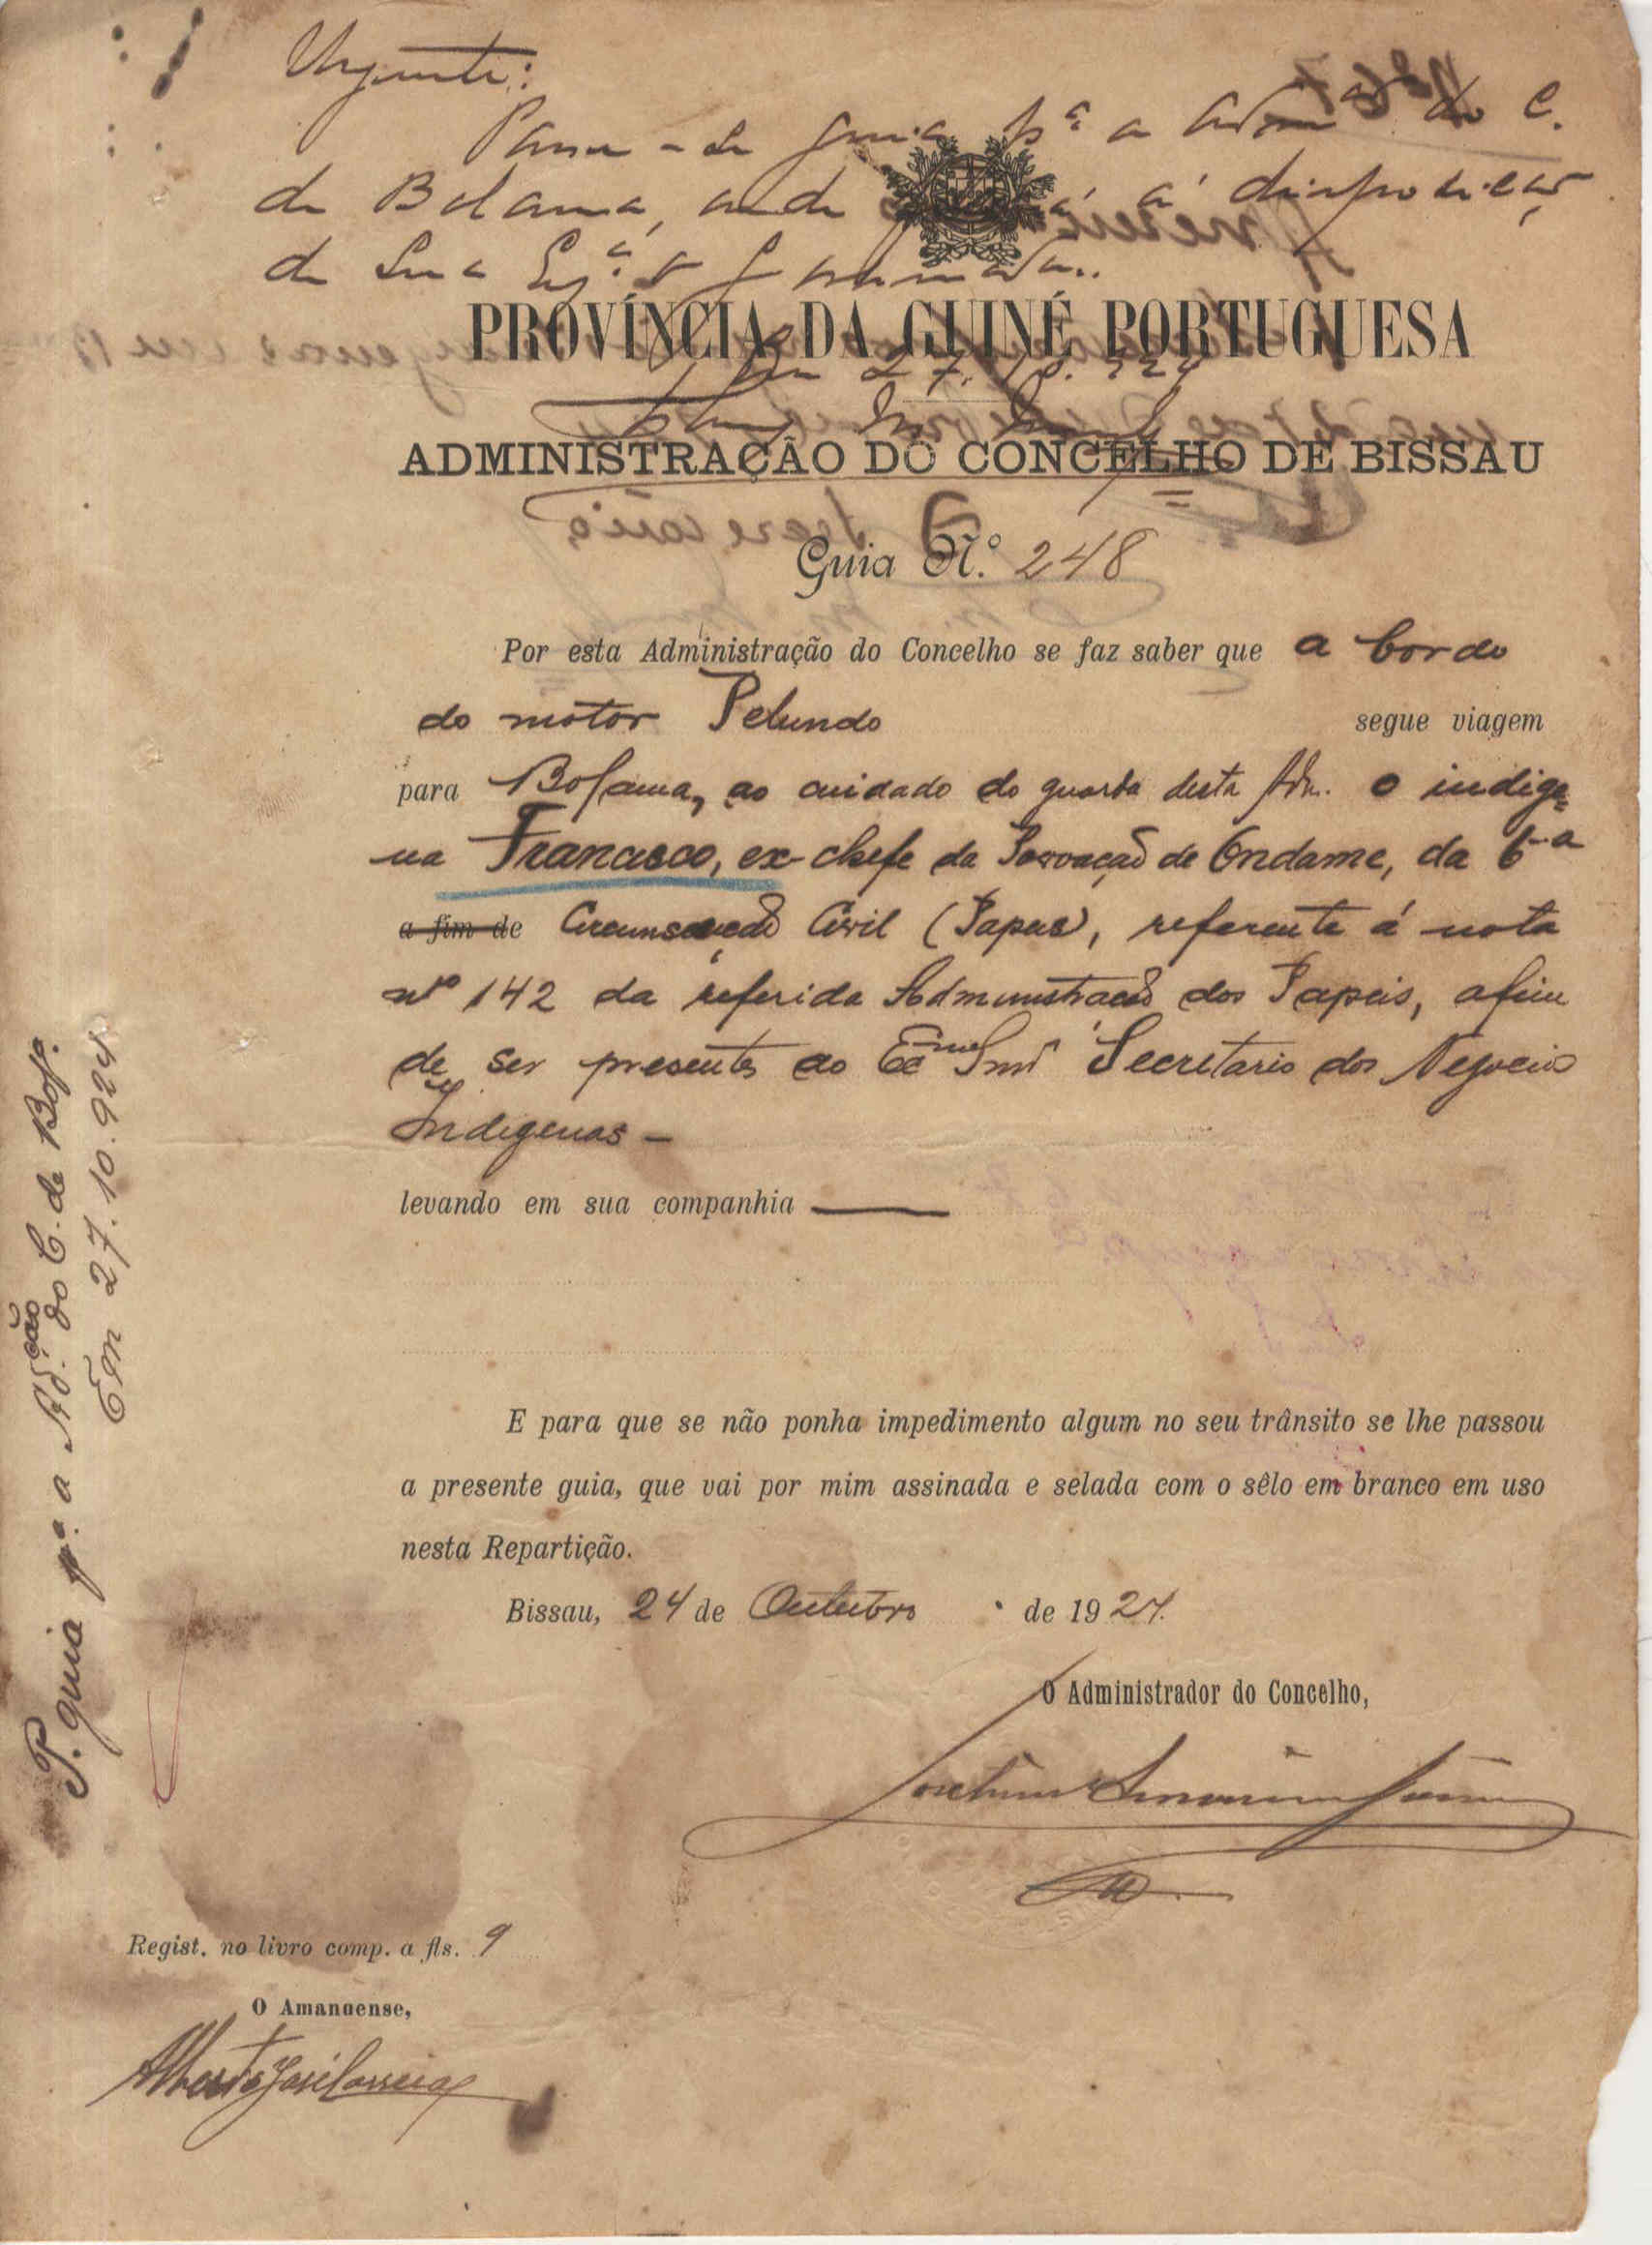 Urgente:
Passa-se guia p.ª a Adm do C.
de Bolama, onde á disposição
de Sua Ex.ª o Governador.
PROVÍNCIA DA GUINÉ PORTUGUESA
Em 27.10.924
ADMINISTRAÇÃO DO CONCELHO DE BISSAU
Guia N.º 248
Por esta Administração do Concelho se faz saber que a bordo
do motor Pelundo segue viagem
para Bolama, ao cuidado do guarda desta Adm. o indige-
na Francisco, ex-chefe da Povoação de Ondame, da 6-a
a fim de Circunscrição Civil (Papeis), referente á nota
nº 142 da referida Administração dos Papeis, afim
de ser presente ao Exmo Snr Secretario dos Negocios
Indigenas —
levando em sua companhia ——
E para que se não ponha impedimento algum no seu trânsito se lhe passou
a presente guia, que vai por mim assinada e selada com o sêlo em branco em uso
nesta Repartição.
Bissau, 24 de Outubro de 1924.
O Administrador do Concelho,
Regist. no livro comp. a fls. 9
O Amanuense,
Alberto José Correia
P. guia p.ª a Ad.ção do C. de Bol.ª
Em 27.10.924